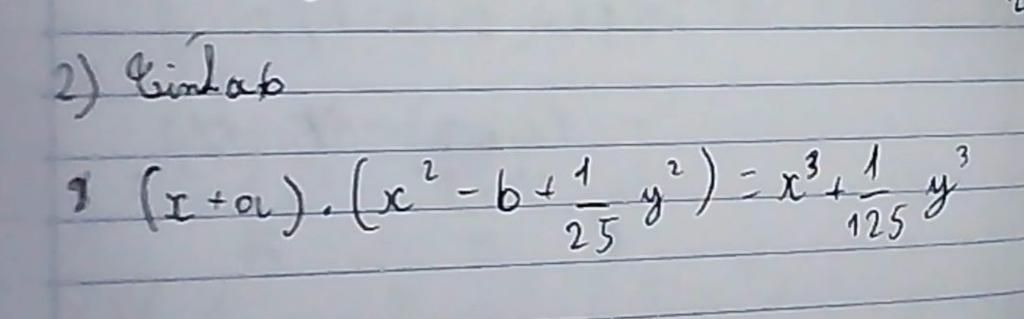 2) tính ab
(x+a).(x² - b + 1/25 y²) = x³ + 1/125 y³